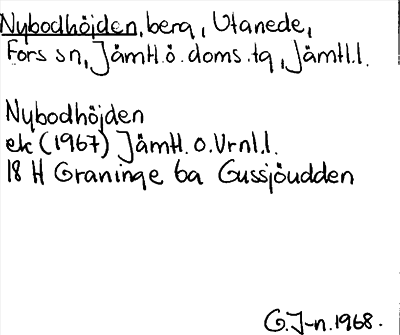 Nybodhöjden, berg, Utanede,
Fors sn, Jämtl. ö. doms. tg, Jämtl. l.
Nybodhöjden
ek (1967) Jämtl. o. Vrnl. l.
18 H Graninge 6a Gussjöudden
G. J-n. 1968.